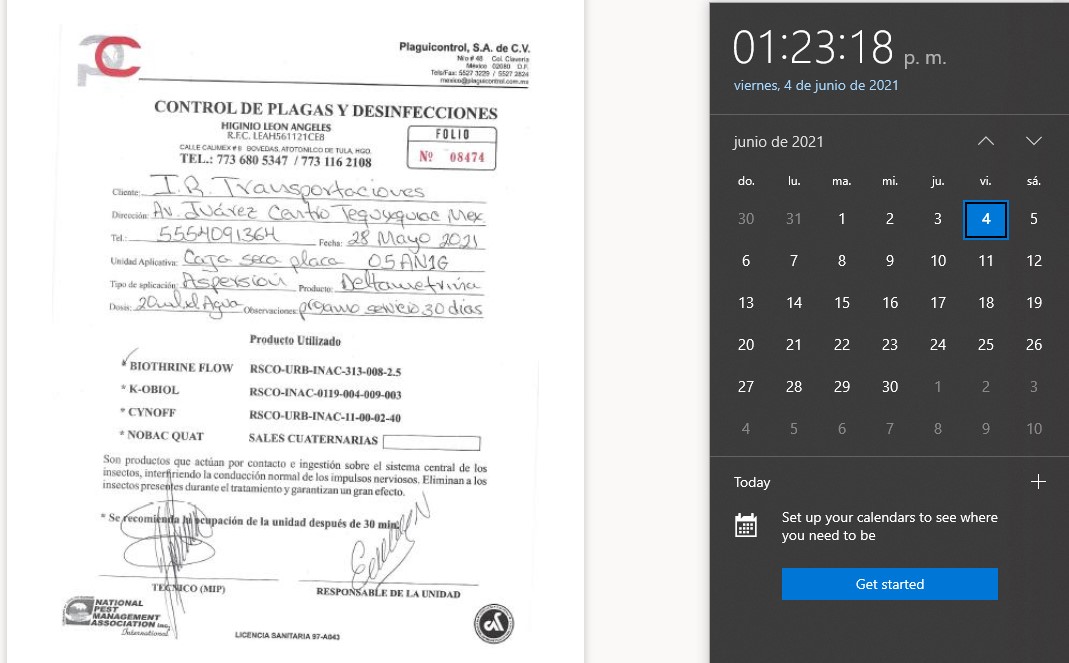 PC
Plaguicontrol, S.A. de C.V.
N/o # 48 Col. Clavería
México 02080 D.F.
Tels/Fax: 5527 3229 / 5527 2824
mexico@plaguicontrol.com.mx
CONTROL DE PLAGAS Y DESINFECCIONES
HIGINIO LEON ANGELES
R.F.C. LEAH561121CE8
CALLE CALIMEX # 8 BOVEDAS, ATOTONILCO DE TULA, HGO.
TEL.: 773 680 5347 / 773 116 2108
FOLIO
Nº 08474
Cliente: I.R. Transportaciones
Dirección: Av. Juárez Centro Tequixquiac Mex.
Tel.: 5554091364 Fecha: 28 Mayo 2021
Unidad Aplicativa: Caja seca placa 05AN1G
Tipo de aplicación: Aspersión Producto: Deltametrina
Dosis: 20ml x l Agua Observaciones: próximo servicio 30 dias
Producto Utilizado
* BIOTHRINE FLOW RSCO-URB-INAC-313-008-2.5
* K-OBIOL RSCO-INAC-0119-004-009-003
* CYNOFF RSCO-URB-INAC-11-00-02-40
* NOBAC QUAT SALES CUATERNARIAS
Son productos que actúan por contacto e ingestión sobre el sistema central de los
insectos, interfiriendo la conducción normal de los impulsos nerviosos. Eliminan a los
insectos presentes durante el tratamiento y garantizan un gran efecto.
* Se recomienda la ocupación de la unidad después de 30 min.
TECNICO (MIP)
RESPONSABLE DE LA UNIDAD
NATIONAL
PEST
MANAGEMENT
ASSOCIATION Inc.
International
LICENCIA SANITARIA 97-A043
01:23:18 p. m.
viernes, 4 de junio de 2021
junio de 2021
do. lu. ma. mi. ju. vi. sá.
30 31 1 2 3 4 5
6 7 8 9 10 11 12
13 14 15 16 17 18 19
20 21 22 23 24 25 26
27 28 29 30 1 2 3
4 5 6 7 8 9 10
Today
Set up your calendars to see where
you need to be
Get started